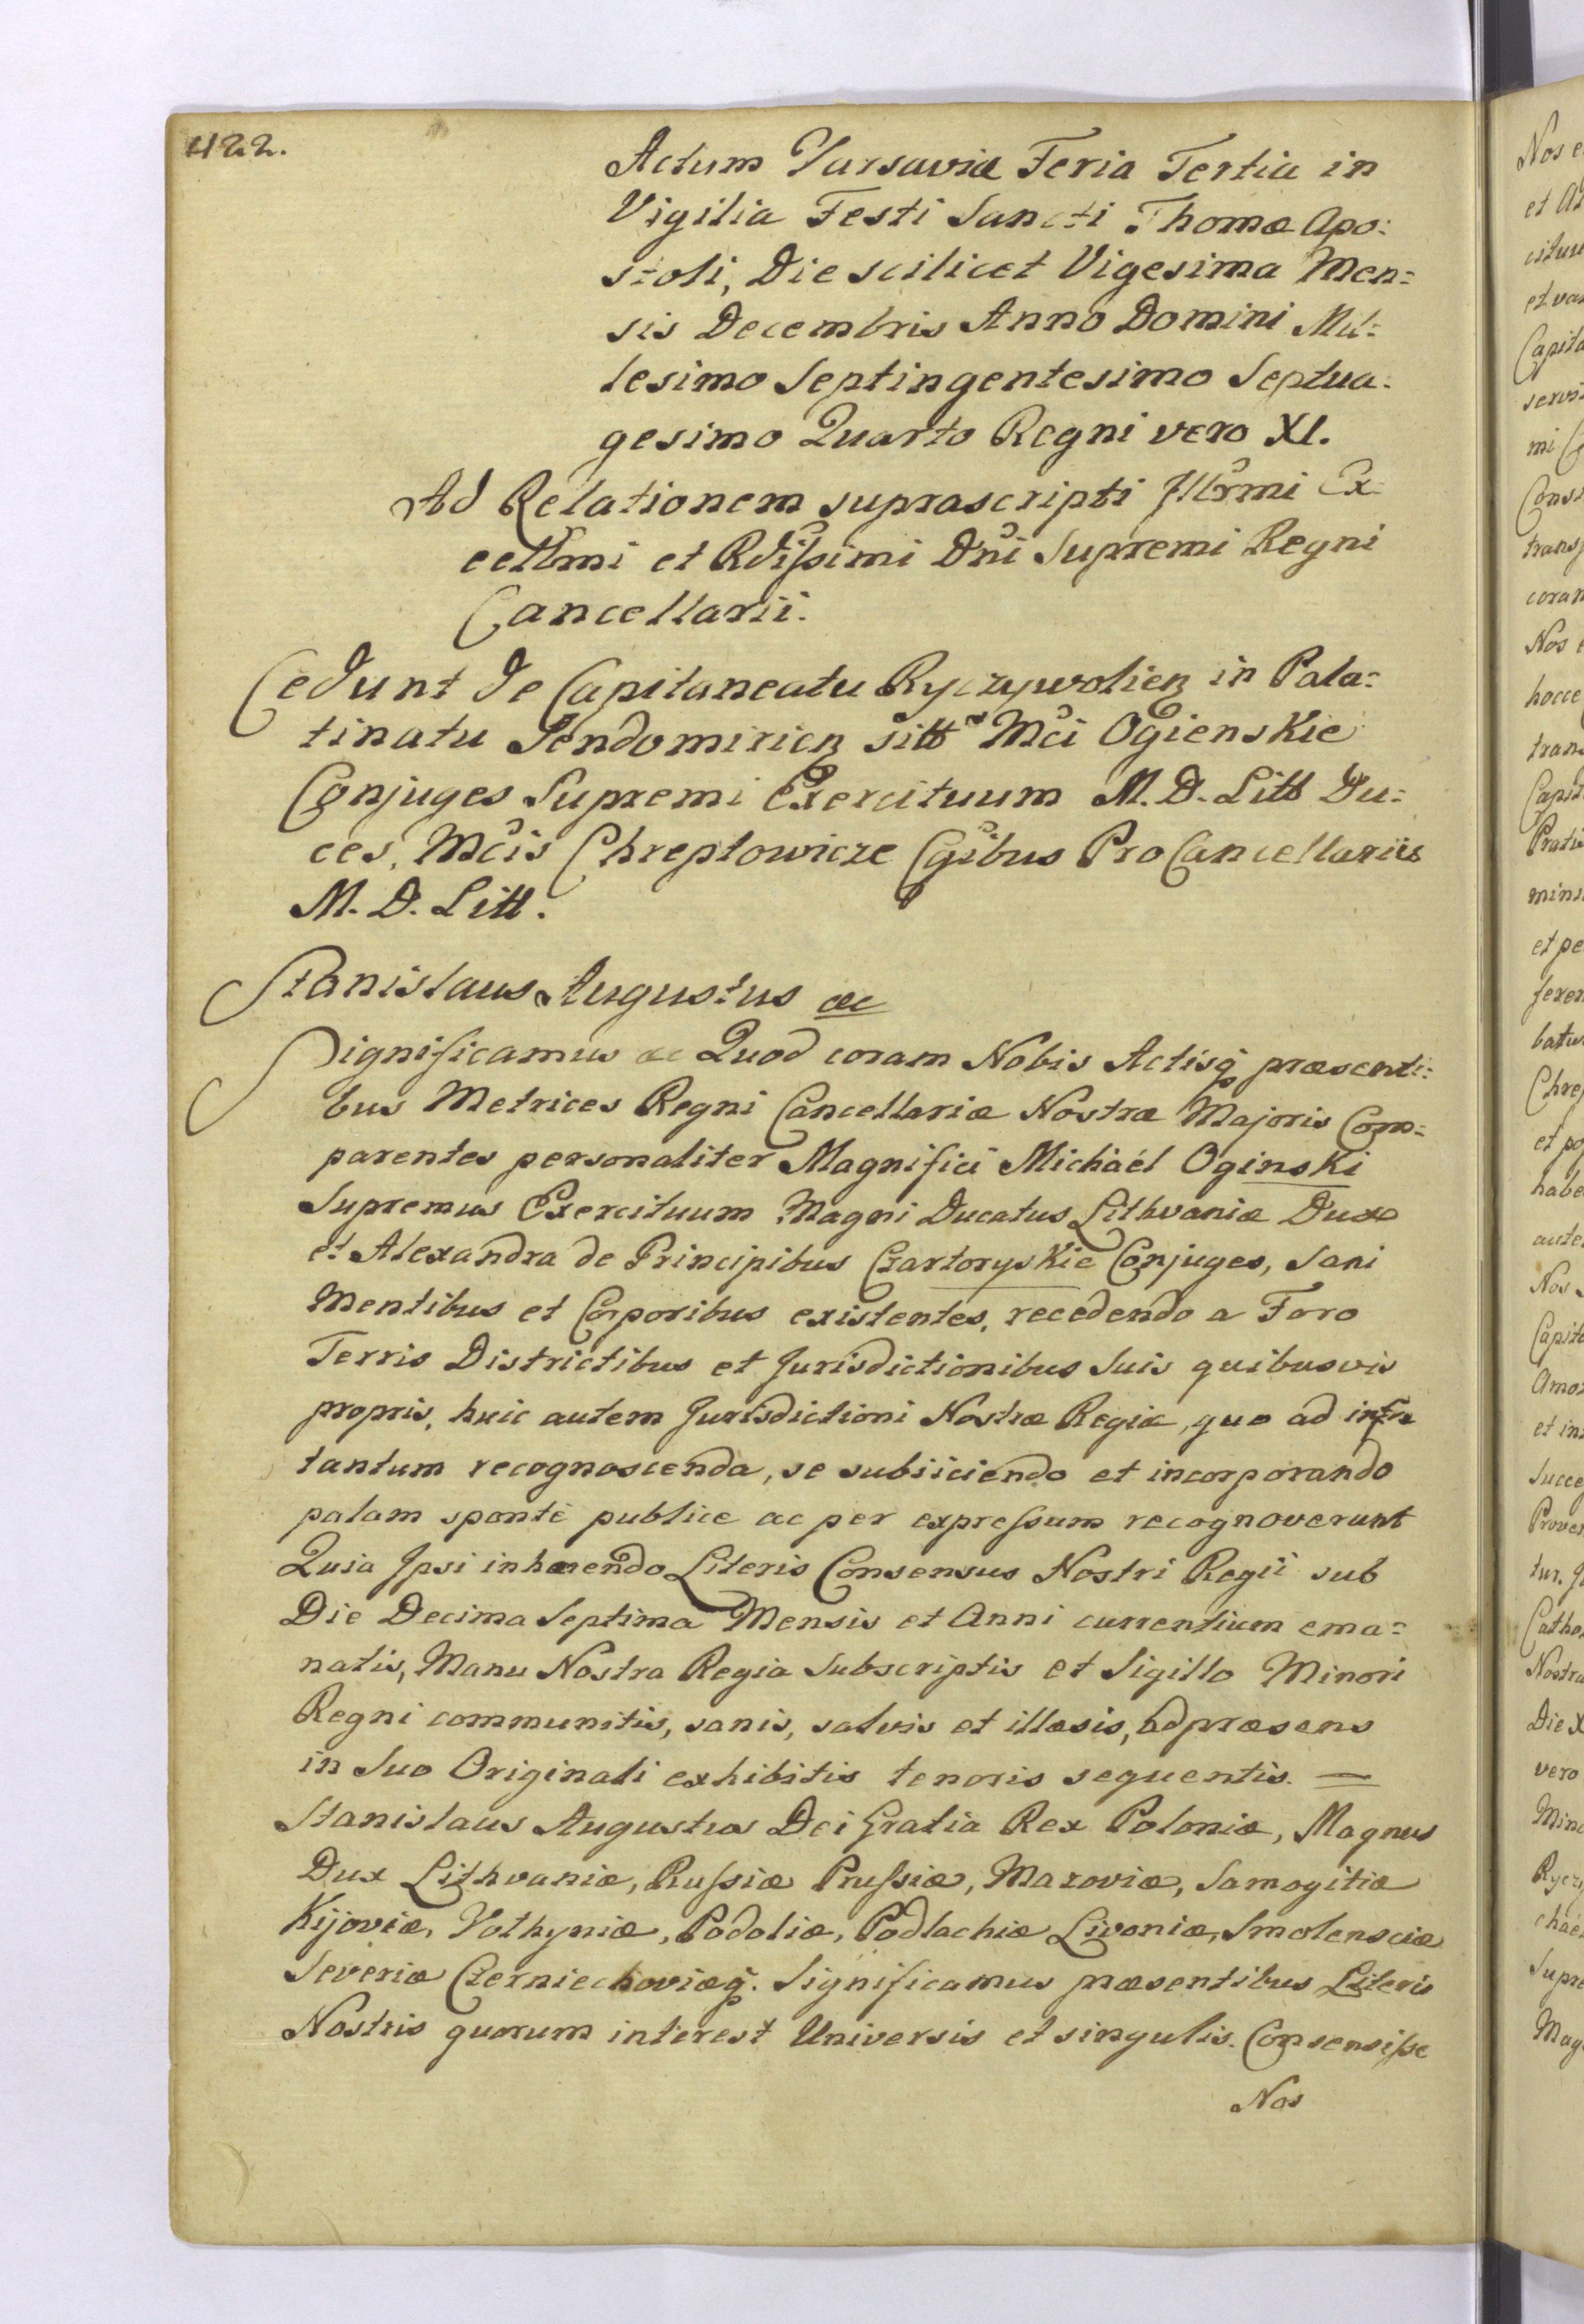 422.
Actum Varsaviæ Feria Tertia in
Vigilia Festi Sancti Thomæ Apo:
stoli, Die scilicet Vigesima Men:
sis Decembris Anno Domini Mil:
lesimo Septingentesimo Septua:
gesimo Quarto Regni vero XI.
Ad Relationem suprascripti Illrmi Ex
cellmi et Rdissimi Dni Supremi Regni
Cancellarii.
Cedunt de Capitaneatu Ryczywolien in Pala:
tinatu Sendomirien sitt Mci Ogienskie
Conjuges Supremi Exercituum M. D. Litt Du:
ces, Mcis Chreptowicze Cgibus ProCancellariis
M. D. Litt.
Stanislaus Augustus &c
Significamus &c Quod coram Nobis Actisq præsenti:
bus Metrices Regni Cancellariæ Nostræ Majoris Com:
parentes personaliter Magnifici Michaél Oginski
Supremus Exercituum Magni Ducatus Lithvaniæ Dux
et Alexandra de Principibus Czartoryskie Conjuges, Sani
Mentibus et Corporibus existentes, recedendo a Foro
Terris Districtibus et Jurisdictionibus Suis quibusvis
propris, huic autem Jurisdictioni Nostræ Regiæ, quo ad infra
tantum recognoscenda, se subiiciendo et incorporando
palam sponte publice ac per expressum recognoverunt
Quia Ipsi inhærendo Literis Consensus Nostri Regii sub
Die Decima Septima Mensis et Anni currentium ema:
natis, Manu Nostra Regia Subscriptis et Sigillo Minori
Regni communitis, sanis, salvis et illæsis, ad præsens
in Suo Originali exhibitis tenoris sequentis. —
Stanislaus Augustus Dei Gratia Rex Poloniæ, Magnus
Dux Lithvaniæ, Russiæ Prussiæ, Mazoviæ, Samogitiæ
Kijoviæ, Volhyniæ, Podoliæ, Podlachiæ Livoniæ, Smolensciæ
Severiæ Czerniechoviæq. Significamus præsentibus Literis
Nostris quorum interest Universis et singulis. Consensisse
Nos